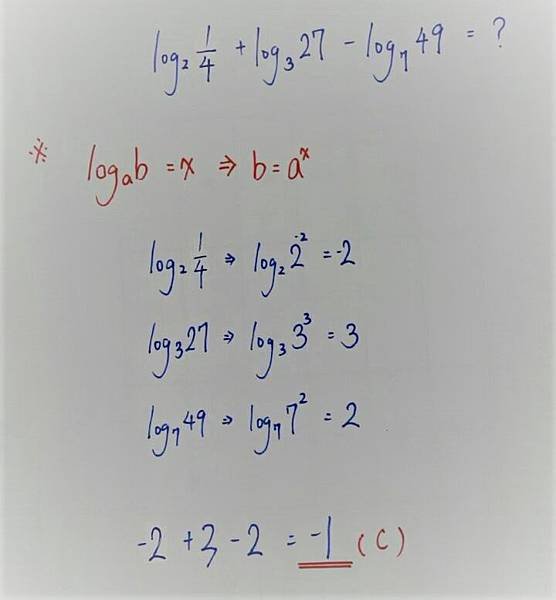 log₂ 1/4 + log₃ 27 - log₇ 49 = ?
※ logₐb = x ⇒ b = aˣ
log₂ 1/4 ⇒ log₂ 2⁻² = -2
log₃ 27 ⇒ log₃ 3³ = 3
log₇ 49 ⇒ log₇ 7² = 2
-2 + 3 - 2 = -1 (C)